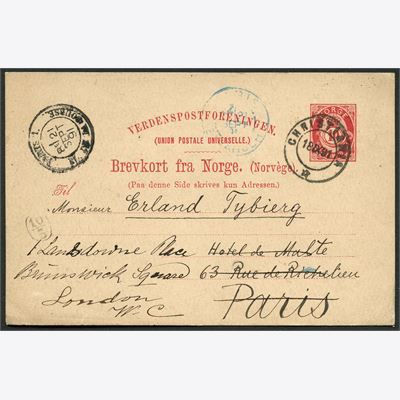 VERDENSPOSTFORENINGEN.
(UNION POSTALE UNIVERSELLE.)
Brevkort fra Norge. (Norvège).
(Paa denne Side skrives kun Adressen.)
Til
Monsieur Erland Tybjerg
Hotel de Malte
63 Rue de Richelieu
Paris
1 Lansdowne Place
Brunswick Square
London
W. C
CHRISTIANIA
NORGE
PARIS 1.